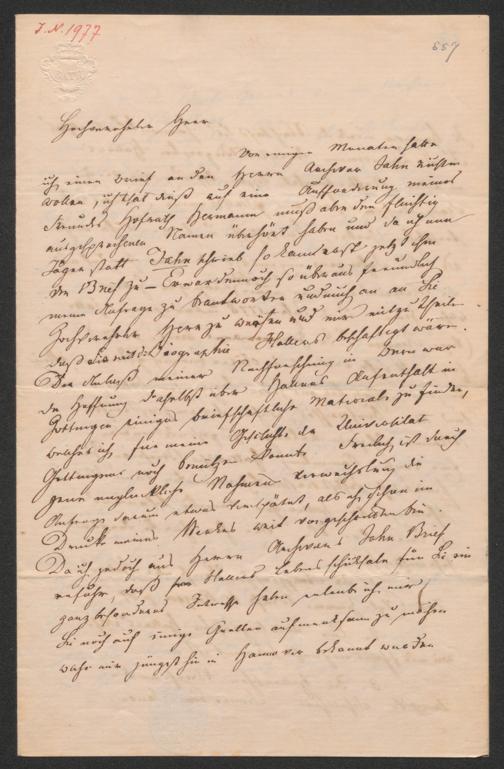 J. N. 1977
557
BATH
Hochverehrter Herr
Vor einigen Monaten hatte
ich einen Brief an den Herrn Archivar Jahn richten
wollen, ich that dieß auf eine Aufforderung meines
Freundes Hofrath Hermann muß aber den flüchtig
ausgesprochenen Namen überhört haben und da ich nun
Jäger statt Jahn schrieb so kam erst jetzt ihm
der Brief zu – Er war dennoch so überaus freundlich
meine Anfrage zu beantworten und mich an Sie
Hochverehrter Herr zu weisen und mir mitzutheilen
daß Sie mit Biographie Hallers beschäftigt wären.
Der Anlaß meiner Nachforschung in Bern war
die Hoffnung daselbst über Hallers Aufenthalt in
Göttingen einiges briefschaftliche Material zu finden,
welches ich für meine Geschichte der Universität
Göttingens noch benützen konnte. Freilich ist durch
jene unglückliche Nahmen Verwechslung die
Anfrage darum etwas verspätet, als ich schon im
Drucke meines Werkes weit vorgeschritten bin.
Da ich jedoch aus Herrn Archivars Jahn Brief
erfuhr, daß Hallers Lebensschicksale für Sie ein
ganz besonderes Interesse haben erlaube ich mir
Sie noch auf einige Quellen aufmerksam zu machen
welche mir jüngsthin in Hannover bekannt wurden